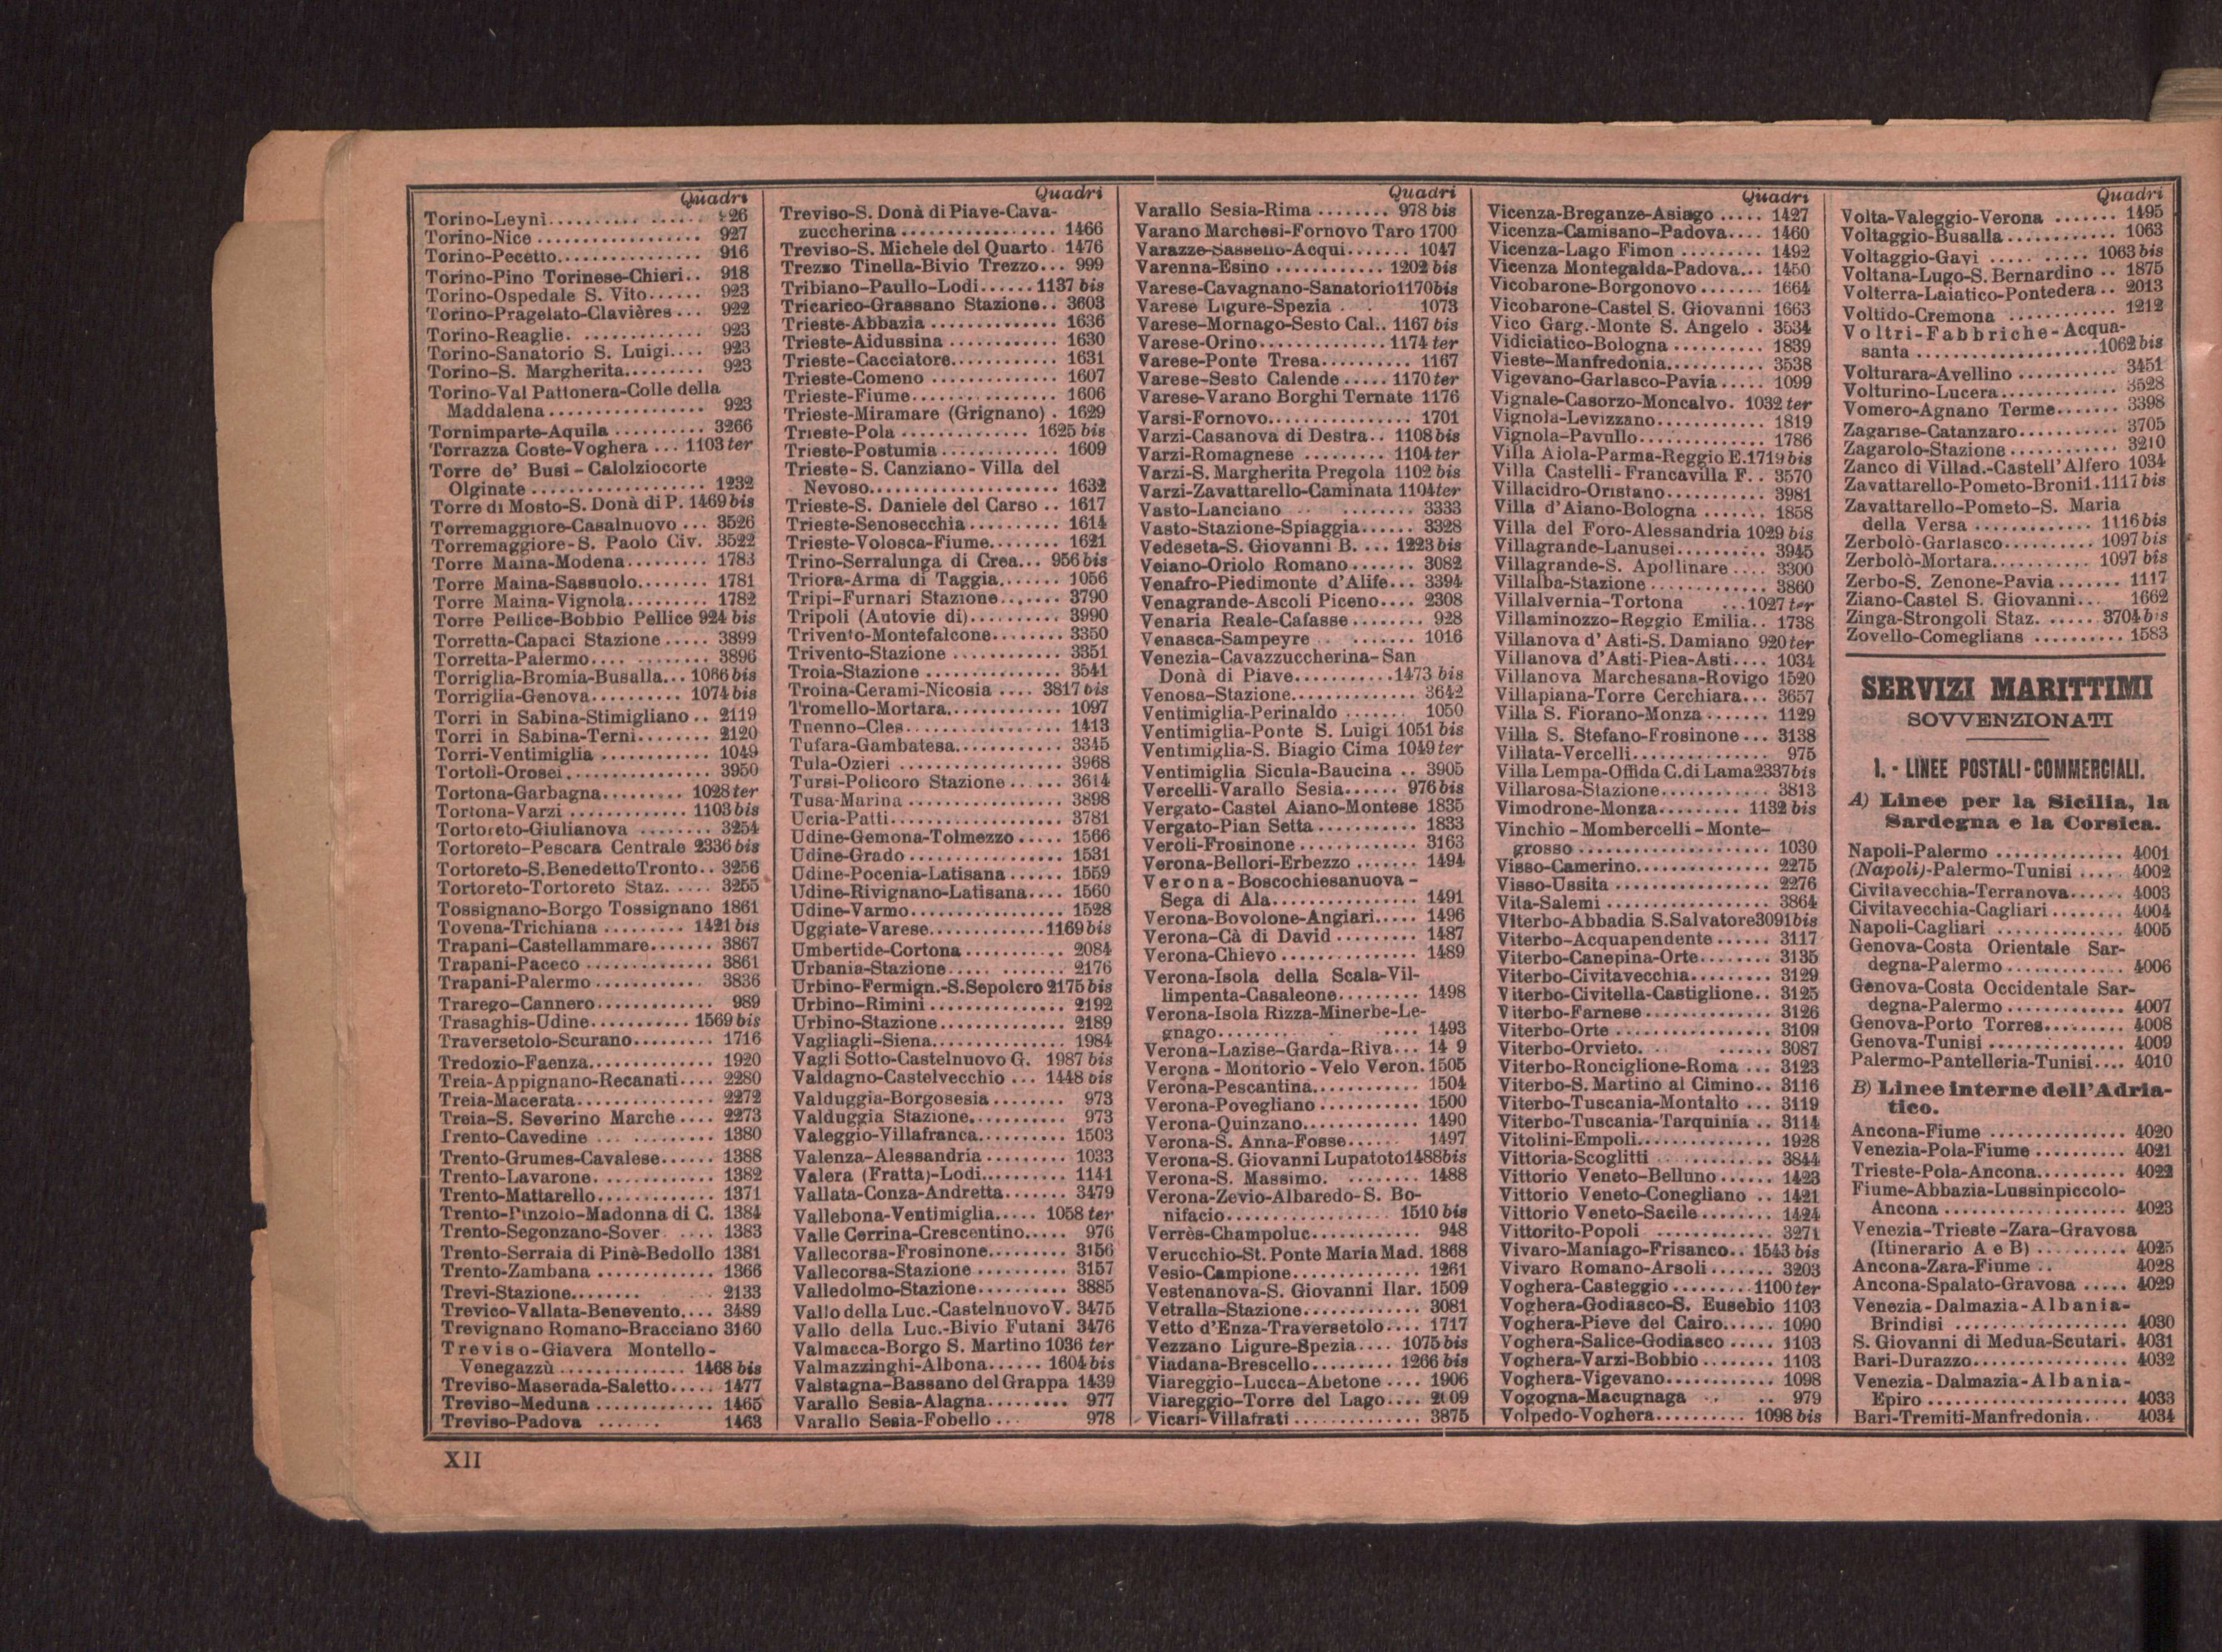 Quadri
Torino-Leyni................ 926
Torino-Nice .................. 927
Torino-Pecetto................ 916
Torino-Pino Torinese-Chieri.. 918
Torino-Ospedale S. Vito...... 923
Torino-Pragelato-Clavières... 922
Torino-Reaglie. ............. 923
Torino-Sanatorio S. Luigi.... 923
Torino-S. Margherita......... 923
Torino-Val Pattonera-Colle della
Maddalena ................. 923
Tornimparte-Aquila .......... 3266
Torrazza Coste-Voghera ... 1103 ter
Torre de' Busi - Calolziocorte
Olginate ................... 1232
Torre di Mosto-S. Donà di P. 1469 bis
Torremaggiore-Casalnuovo ... 3526
Torremaggiore-S. Paolo Civ. 3522
Torre Maina-Modena......... 1783
Torre Maina-Sassuolo........ 1781
Torre Maina-Vignola......... 1782
Torre Pellice-Bobbio Pellice 924 bis
Torretta-Capaci Stazione ..... 3899
Torretta-Palermo.... ........ 3896
Torriglia-Bromia-Busalla... 1086 bis
Torriglia-Genova.......... 1074 bis
Torri in Sabina-Stimigliano .. 2119
Torri in Sabina-Terni........ 2120
Torri-Ventimiglia ............ 1049
Tortolì-Orosei................ 3950
Tortona-Garbagna......... 1028 ter
Tortona-Varzi ............ 1103 bis
Tortoreto-Giulianova ........ 3254
Tortoreto-Pescara Centrale 2336 bis
Tortoreto-S.BenedettoTronto.. 3256
Tortoreto-Tortoreto Staz. .... 3255
Tossignano-Borgo Tossignano 1861
Tovena-Trichiana ......... 1421 bis
Trapani-Castellammare....... 3867
Trapani-Paceco .............. 3861
Trapani-Palermo ............ 3836
Trarego-Cannero............. 989
Trasaghis-Udine........... 1569 bis
Traversetolo-Scurano......... 1716
Tredozio-Faenza.............. 1920
Treia-Appignano-Recanati.... 2280
Treia-Macerata............... 2272
Treia-S. Severino Marche .... 2273
Trento-Cavedine ... ......... 1380
Trento-Grumes-Cavalese...... 1388
Trento-Lavarone.............. 1382
Trento-Mattarello............. 1371
Trento-Pinzolo-Madonna di C. 1384
Trento-Segonzano-Sover .... 1383
Trento-Serraia di Pinè-Bedollo 1381
Trento-Zambana ............. 1366
Trevi-Stazione........ 2133
Trevico-Vallata-Benevento.... 3489
Trevignano Romano-Bracciano 3160
Treviso-Giavera Montello-
Venegazzù ............. 1468 bis
Treviso-Maserada-Saletto..... 1477
Treviso-Meduna ............. 1465
Treviso-Padova ....... 1463
Quadri
Treviso-S. Donà di Piave-Cava-
zuccherina ................. 1466
Treviso-S. Michele del Quarto. 1476
Trezzo Tinella-Bivio Trezzo... 999
Tribiano-Paullo-Lodi...... 1137 bis
Tricarico-Grassano Stazione.. 3603
Trieste-Abbazia .............. 1636
Trieste-Aidussina ............ 1630
Trieste-Cacciatore............ 1631
Trieste-Comeno .............. 1607
Trieste-Fiume................ 1606
Trieste-Miramare (Grignano) . 1629
Trieste-Pola .............. 1625 bis
Trieste-Postumia ............. 1609
Trieste-S. Canziano-Villa del
Nevoso..................... 1632
Trieste-S. Daniele del Carso .. 1617
Trieste-Senosecchia .......... 1614
Trieste-Volosca-Fiume........ 1621
Trino-Serralunga di Crea... 956 bis
Triora-Arma di Taggia....... 1056
Tripi-Furnari Stazione....... 3790
Tripoli (Autovie di).......... 3990
Trivento-Montefalcone........ 3350
Trivento-Stazione ............ 3351
Troia-Stazione ............... 3541
Troina-Cerami-Nicosia .... 3817 bis
Tromello-Mortara............. 1097
Tuenno-Cles................. 1413
Tufara-Gambatesa............ 3345
Tula-Ozieri .................. 3968
Tursi-Policoro Stazione ...... 3614
Tusa-Marina ................. 3898
Ucria-Patti................... 3781
Udine-Gemona-Tolmezzo ..... 1566
Udine-Grado ................. 1531
Udine-Pocenia-Latisana ...... 1559
Udine-Rivignano-Latisana.... 1560
Udine-Varmo................. 1528
Uggiate-Varese.............1169 bis
Umbertide-Cortona ........... 2084
Urbania-Stazione..... ....... 2176
Urbino-Fermign.-S.Sepolcro 2175 bis
Urbino-Rimini ............... 2192
Urbino-Stazione.............. 2189
Vagliagli-Siena............... 1984
Vagli Sotto-Castelnuovo G. 1987 bis
Valdagno-Castelvecchio ... 1448 bis
Valduggia-Borgosesia ........ 973
Valduggia Stazione.......... 973
Valeggio-Villafranca.......... 1503
Valenza-Alessandria ......... 1033
Valera (Fratta)-Lodi.......... 1141
Vallata-Conza-Andretta....... 3479
Vallebona-Ventimiglia..... 1058 ter
Valle Cerrina-Crescentino..... 976
Vallecorsa-Frosinone......... 3156
Vallecorsa-Stazione .......... 3157
Valledolmo-Stazione.......... 3885
Vallo della Luc.-Castelnuovo V. 3475
Vallo della Luc.-Bivio Futani 3476
Valmacca-Borgo S. Martino 1036 ter
Valmazzinghi-Albona...... 1604 bis
Valstagna-Bassano del Grappa 1439
Varallo Sesia-Alagna......... 977
Varallo Sesia-Fobello ... 978
Quadri
Varallo Sesia-Rima ........ 978 bis
Varano Marchesi-Fornovo Taro 1700
Varazze-Sassello-Acqui....... 1047
Varenna-Esino ............ 1202 bis
Varese-Cavagnano-Sanatorio1170bis
Varese Ligure-Spezia . . 1073
Varese-Mornago-Sesto Cal.. 1167 bis
Varese-Orino............. 1174 ter
Varese-Ponte Tresa.......... 1167
Varese-Sesto Calende ..... 1170 ter
Varese-Varano Borghi Ternate 1176
Varsi-Fornovo................ 1701
Varzi-Casanova di Destra.. 1108 bis
Varzi-Romagnese ......... 1104 ter
Varzi-S. Margherita Pregola 1102 bis
Varzi-Zavattarello-Caminata 1104ter
Vasto-Lanciano ........ 3333
Vasto-Stazione-Spiaggia...... 3328
Vedeseta-S. Giovanni B. ... 1223 bis
Veiano-Oriolo Romano....... 3082
Venafro-Piedimonte d'Alife... 3394
Venagrande-Ascoli Piceno.... 2308
Venaria Reale-Cafasse ........ 928
Venasca-Sampeyre ....... 1016
Venezia-Cavazzuccherina-San
Donà di Piave...........1473 bis
Venosa-Stazione.............. 3642
Ventimiglia-Perinaldo ....... 1050
Ventimiglia-Ponte S. Luigi 1051 bis
Ventimiglia-S. Biagio Cima 1049 ter
Ventimiglia Sicula-Baucina .. 3905
Vercelli-Varallo Sesia...... 976 bis
Vergato-Castel Aiano-Montese 1835
Vergato-Pian Setta ........... 1833
Veroli-Frosinone ............. 3163
Verona-Bellori-Erbezzo ....... 1494
Verona-Boscochiesanuova-
Sega di Ala................ 1491
Verona-Bovolone-Angiari..... 1496
Verona-Cà di David ......... 1487
Verona-Chievo ............... 1489
Verona-Isola della Scala-Vil-
limpenta-Casaleone......... 1498
Verona-Isola Rizza-Minerbe-Le-
gnago........ . .... 1493
Verona-Lazise-Garda-Riva... 14 9
Verona-Montorio-Velo Veron. 1505
Verona-Pescantina............ 1504
Verona-Povegliano ........... 1500
Verona-Quinzano............. 1490
Verona-S. Anna-Fosse..... 1497
Verona-S. Giovanni Lupatoto1488bis
Verona-S. Massimo. ........ 1488
Verona-Zevio-Albaredo-S. Bo-
nifacio.................. 1510 bis
Verrès-Champoluc............ 948
Verucchio-St. Ponte Maria Mad. 1868
Vesio-Campione.............. 1261
Vestenanova-S. Giovanni Ilar. 1509
Vetralla-Stazione............. 3081
Vetto d'Enza-Traversetolo.... 1717
Vezzano Ligure-Spezia.... 1075 bis
Viadana-Brescello......... 1266 bis
Viareggio-Lucca-Abetone .... 1906
Viareggio-Torre del Lago.... 2009
Vicari-Villafrati .............. 3875
Quadri
Vicenza-Breganze-Asiago ..... 1427
Vicenza-Camisano-Padova.... 1460
Vicenza-Lago Fimon ......... 1492
Vicenza Montegalda-Padova... 1450
Vicobarone-Borgonovo ....... 1664
Vicobarone-Castel S. Giovanni 1663
Vico Garg.-Monte S. Angelo . 3534
Vidiciatico-Bologna .......... 1839
Vieste-Manfredonia........... 3538
Vigevano-Garlasco-Pavia ..... 1099
Vignale-Casorzo-Moncalvo. 1032 ter
Vignola-Levizzano............ 1819
Vignola-Pavullo.............. 1786
Villa Aiola-Parma-Reggio E.1719 bis
Villa Castelli-Francavilla F.. 3570
Villacidro-Oristano........... 3981
Villa d'Aiano-Bologna ....... 1858
Villa del Foro-Alessandria 1029 bis
Villagrande-Lanusei.......... 3945
Villagrande-S. Apollinare .... 3300
Villalba-Stazione ............. 3860
Villalvernia-Tortona ...1027 ter
Villaminozzo-Reggio Emilia.. 1738
Villanova d'Asti-S. Damiano 920 ter
Villanova d'Asti-Piea-Asti.... 1034
Villanova Marchesana-Rovigo 1520
Villapiana-Torre Cerchiara... 3657
Villa S. Fiorano-Monza ....... 1129
Villa S. Stefano-Frosinone ... 3138
Villata-Vercelli............... 975
Villa Lempa-Offida C.di Lama2337bis
Villarosa-Stazione............ 3813
Vimodrone-Monza......... 1132 bis
Vinchio-Mombercelli-Monte-
grosso ..................... 1030
Visso-Camerino.............. 2275
Visso-Ussita ................. 2276
Vita-Salemi .................. 3864
Viterbo-Abbadia S.Salvatore3091bis
Viterbo-Acquapendente ...... 3117
Viterbo-Canepina-Orte........ 3135
Viterbo-Civitavecchia......... 3129
Viterbo-Civitella-Castiglione.. 3125
Viterbo-Farnese .............. 3126
Viterbo-Orte ................. 3109
Viterbo-Orvieto. . ...... 3087
Viterbo-Ronciglione-Roma ... 3123
Viterbo-S. Martino al Cimino.. 3116
Viterbo-Tuscania-Montalto ... 3119
Viterbo-Tuscania-Tarquinia .. 3114
Vitolini-Empoli............... 1928
Vittoria-Scoglitti ............. 3844
Vittorio Veneto-Belluno ...... 1423
Vittorio Veneto-Conegliano .. 1421
Vittorio Veneto-Sacile ........ 1424
Vittorito-Popoli .............. 3271
Vivaro-Maniago-Frisanco.. 1543 bis
Vivaro Romano-Arsoli ....... 3203
Voghera-Casteggio ......... 1100 ter
Voghera-Godiasco-S. Eusebio 1103
Voghera-Pieve del Cairo...... 1090
Voghera-Salice-Godiasco ..... 1103
Voghera-Varzi-Bobbio ........ 1103
Voghera-Vigevano............ 1098
Vogogna-Macugnaga .. .. 979
Volpedo-Voghera.......... 1098 bis
Quadri
Volta-Valeggio-Verona ....... 1495
Voltaggio-Busalla............ 1063
Voltaggio-Gavi ..... ..... 1063 bis
Voltana-Lugo-S. Bernardino .. 1875
Volterra-Laiatico-Pontedera .. 2013
Voltido-Cremona ............ 1212
Voltri-Fabbriche-Acqua-
santa ...................1062 bis
Volturara-Avellino ........... 3451
Volturino-Lucera............. 3528
Vomero-Agnano Terme....... 3398
Zagarise-Catanzaro........... 3705
Zagarolo-Stazione ............ 3210
Zanco di Villad.-Castell'Alfero 1034
Zavattarello-Pometo-Broni1.1117 bis
Zavattarello-Pometo-S. Maria
della Versa ............. 1116 bis
Zerbolò-Garlasco.......... 1097 bis
Zerbolò-Mortara........... 1097 bis
Zerbo-S. Zenone-Pavia ....... 1117
Ziano-Castel S. Giovanni... 1662
Zinga-Strongoli Staz. ..... 3704 bis
Zovello-Comeglians .......... 1583
SERVIZI MARITTIMI
SOVVENZIONATI
1. - LINEE POSTALI-COMMERCIALI.
A) Linee per la Sicilia, la
Sardegna e la Corsica.
Napoli-Palermo .............. 4001
(Napoli)-Palermo-Tunisi ..... 4002
Civitavecchia-Terranova...... 4003
Civitavecchia-Cagliari ........ 4004
Napoli-Cagliari .............. 4005
Genova-Costa Orientale Sar-
degna-Palermo ............. 4006
Genova-Costa Occidentale Sar-
degna-Palermo ............. 4007
Genova-Porto Torres......... 4008
Genova-Tunisi ............... 4009
Palermo-Pantelleria-Tunisi.... 4010
B) Linee interne dell'Adria-
tico.
Ancona-Fiume ............... 4020
Venezia-Pola-Fiume .......... 4021
Trieste-Pola-Ancona.......... 4022
Fiume-Abbazia-Lussinpiccolo-
Ancona .................... 4023
Venezia-Trieste-Zara-Gravosa
(Itinerario A e B) .......... 4025
Ancona-Zara-Fiume .. 4028
Ancona-Spalato-Gravosa ..... 4029
Venezia-Dalmazia-Albania-
Brindisi .................... 4030
S. Giovanni di Medua-Scutari. 4031
Bari-Durazzo................. 4032
Venezia-Dalmazia-Albania-
Epiro ...................... 4033
Bari-Tremiti-Manfredonia.. 4034
XII